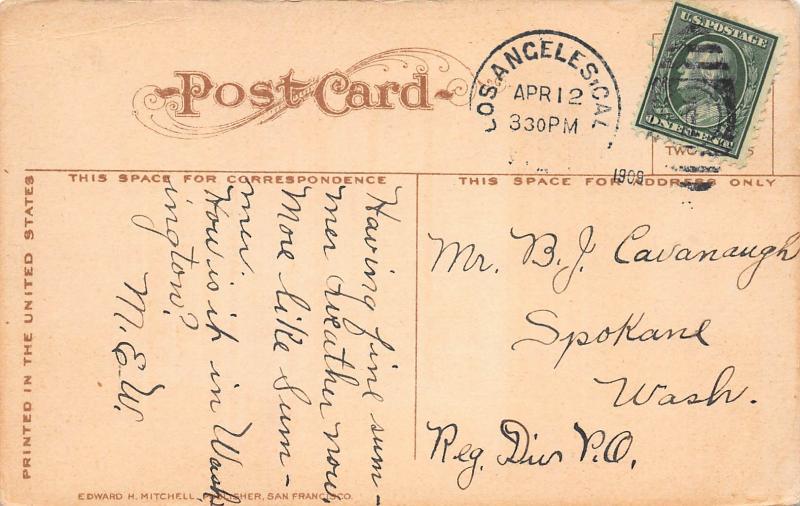 Post Card
LOS ANGELES, CAL.
APR 12
330 PM
1909
U.S. POSTAGE
THIS SPACE FOR CORRESPONDENCE
THIS SPACE FOR ADDRESS ONLY
PRINTED IN THE UNITED STATES
Having fine sum-
mer weather now.
More like Sum-
mer.
How is it in Wash-
ington?
M.E.W.
Mr. B. J. Cavanaugh
Spokane
Wash.
Reg. Div P.O.
EDWARD H. MITCHELL, PUBLISHER, SAN FRANCISCO.